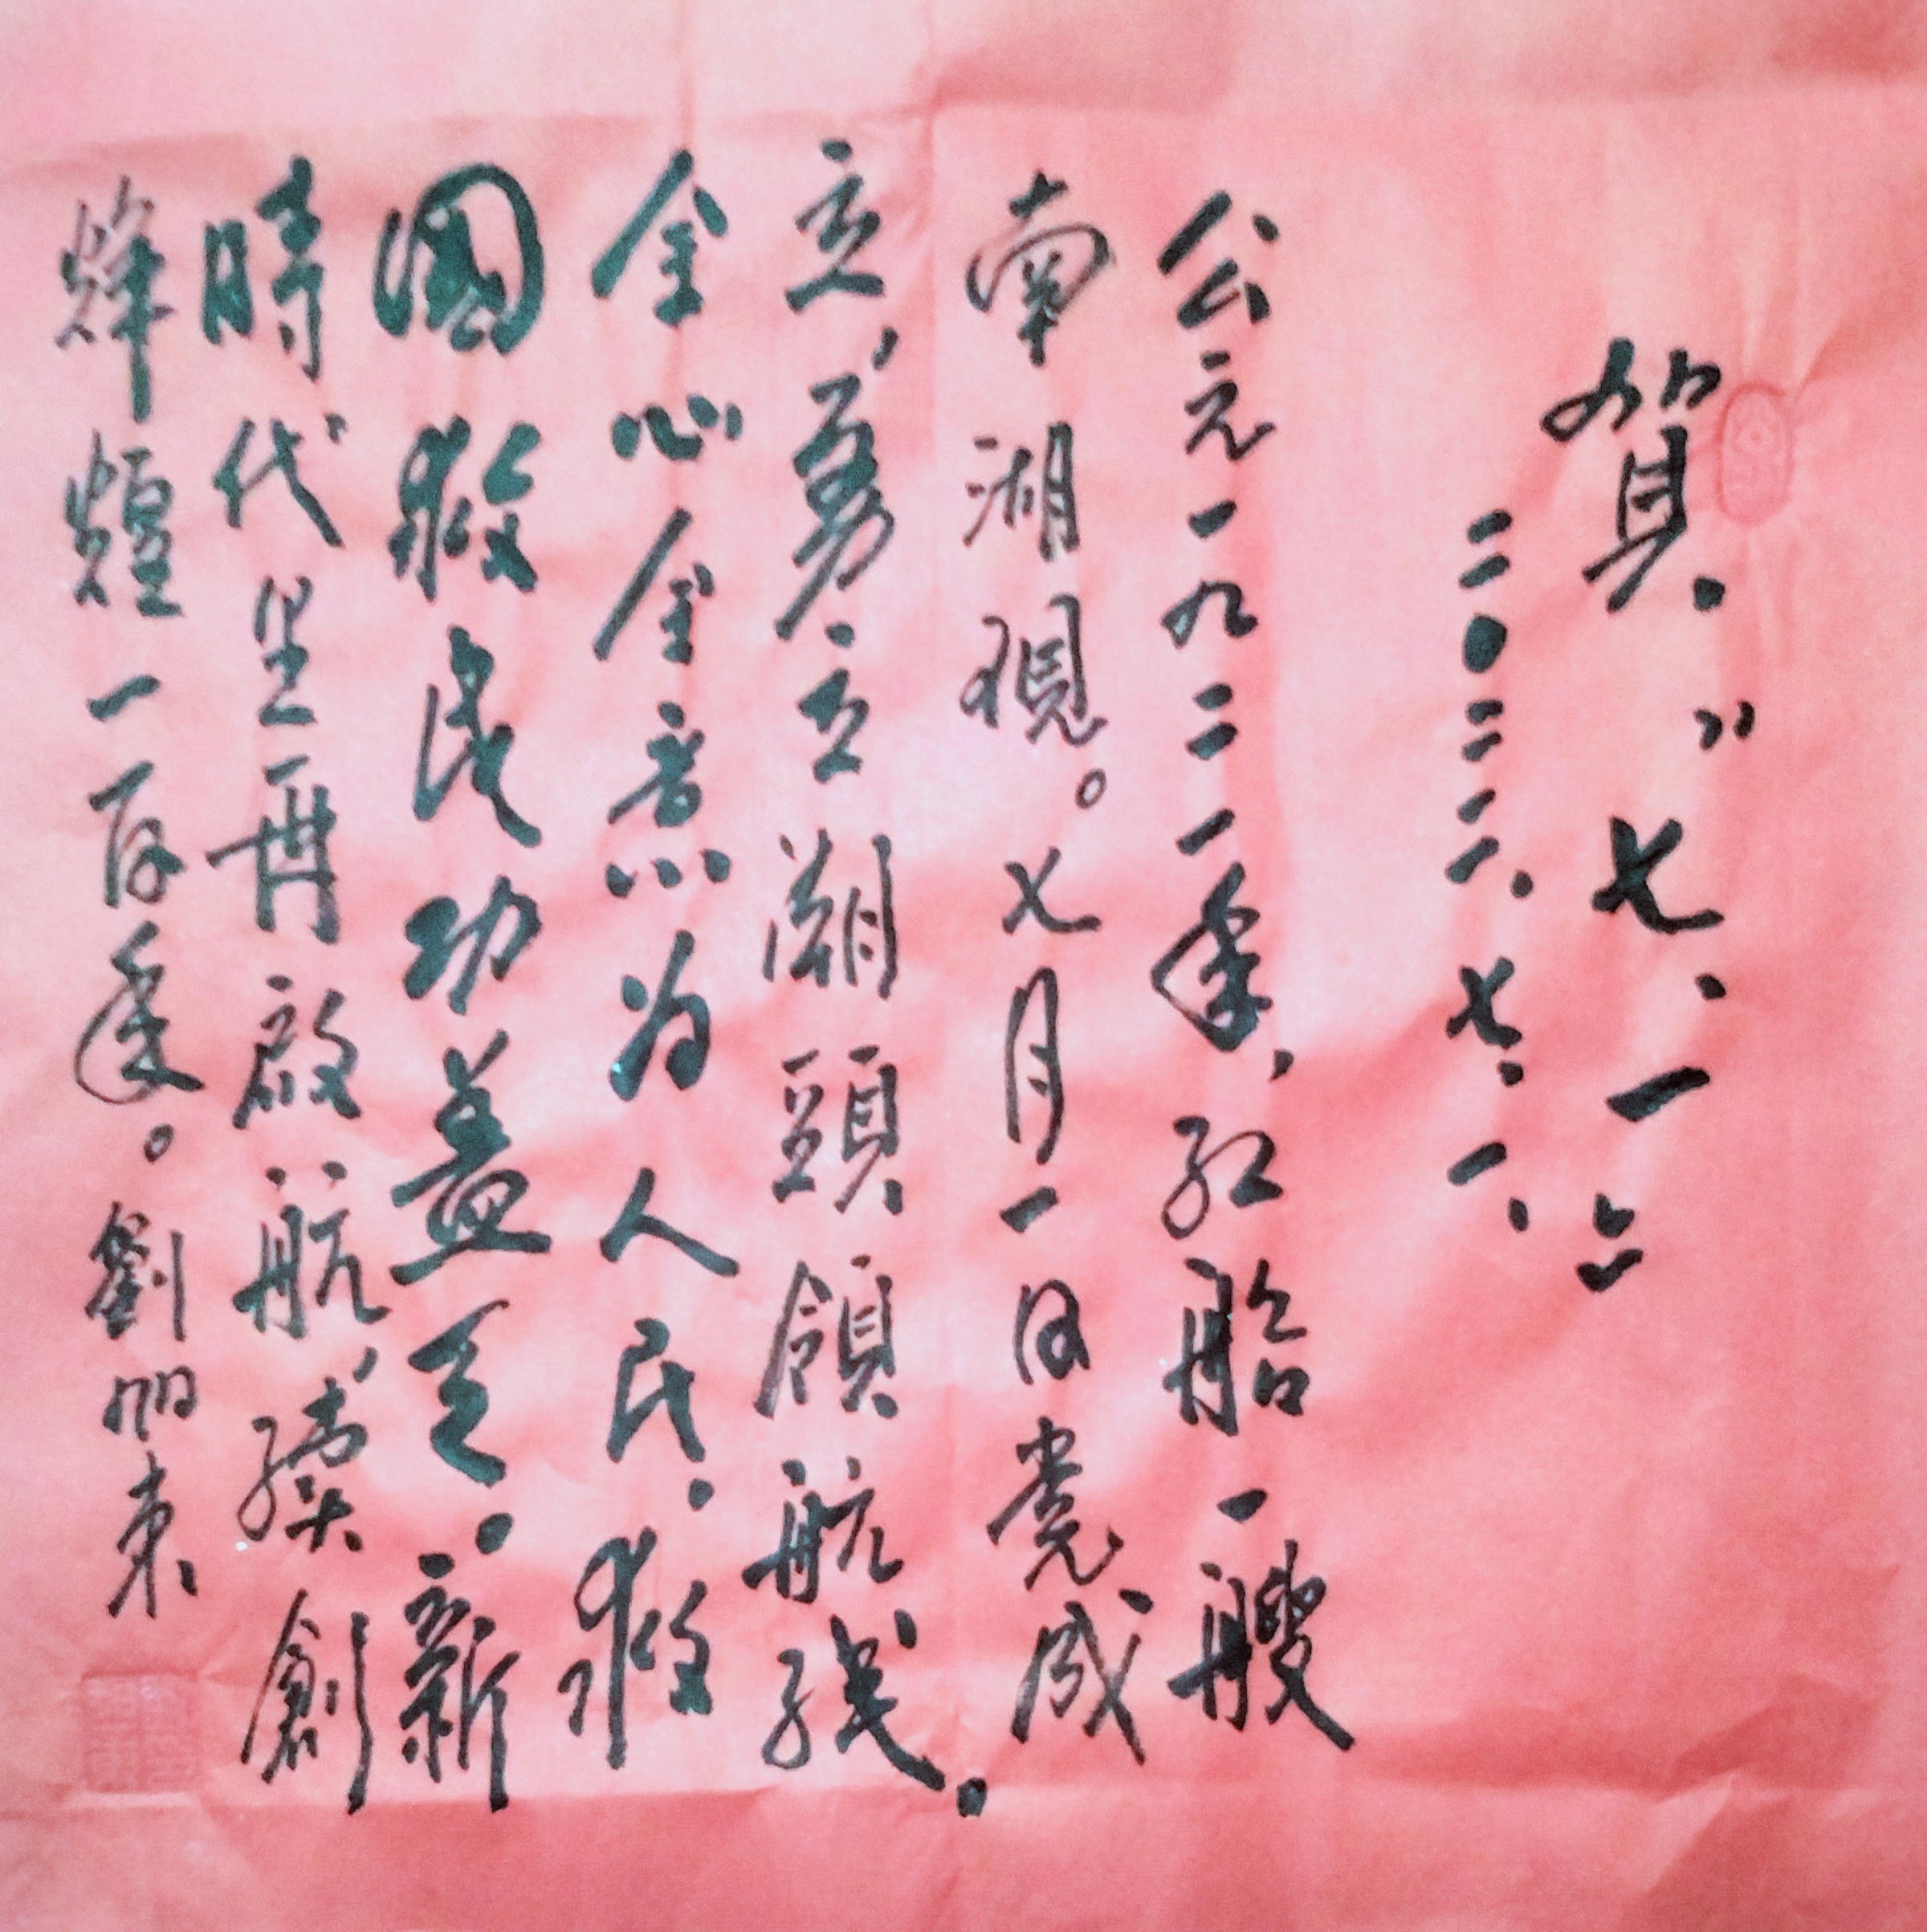 賀.“七.一”
二0二二.七.一.
公元一九二一年,红船一艘
南湖現。七月一日党成
立,勇立潮頭領航线.
全心全意为人民.救
國救民功盖天.新
時代里再啟航,續創
煇煌一百年。劉東